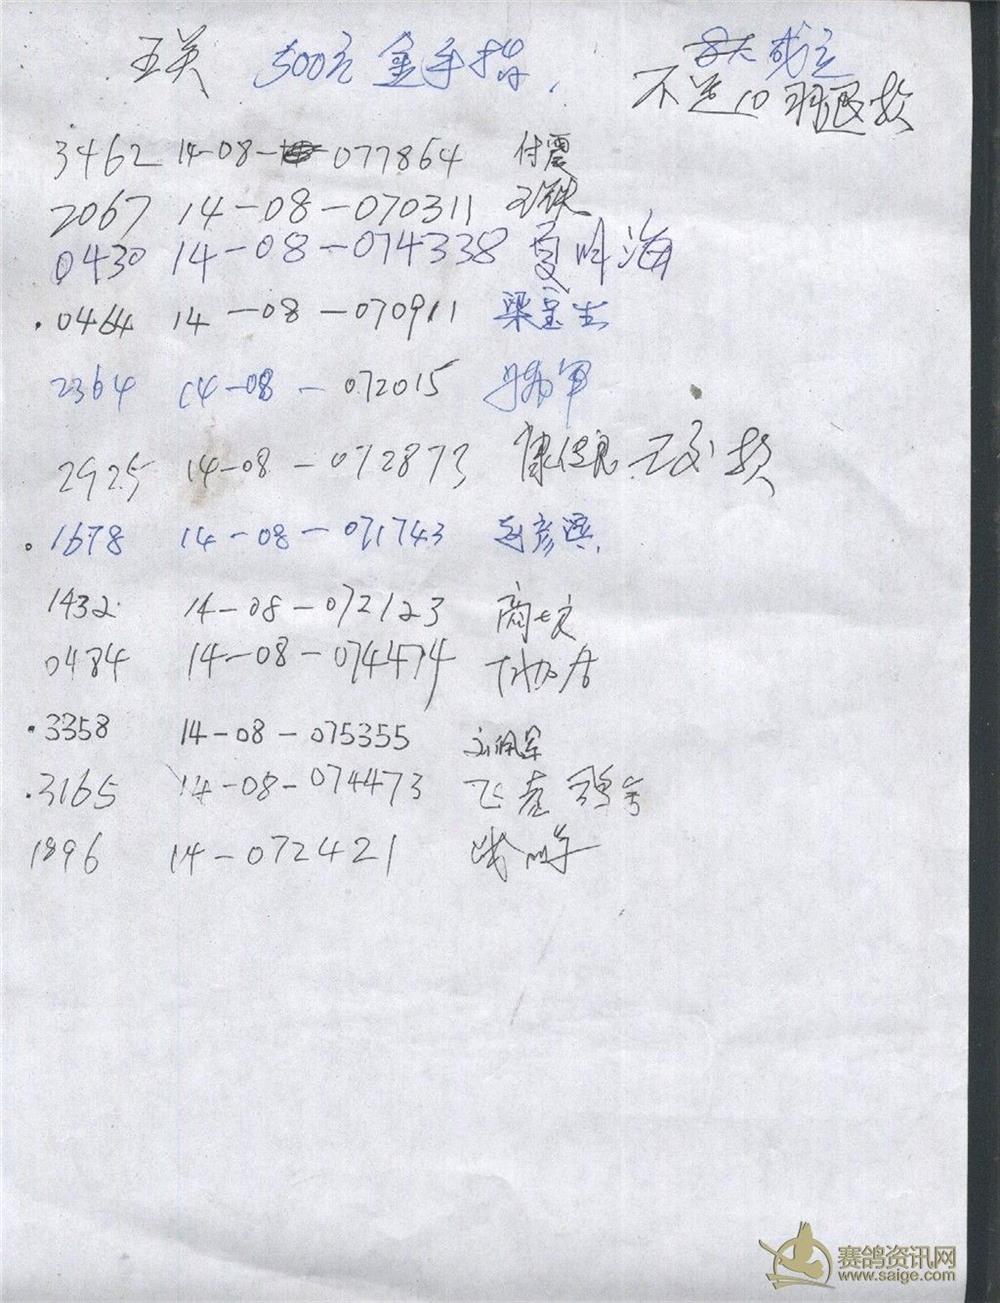 五关 500元金手指,
成立
不达10羽退款
3462 14-08-077864 付震
2067 14-08-070311
0430 14-08-074338 夏 海
.0464 14-08-070911 梁宝生
2364 14-08-072015 军
2925 14-08-072873 康 款
.1678 14-08-071743 赵彦
1432 14-08-072123 商
0484 14-08-074474
.3358 14-08-075355 刘佩军
.3165 14-08-074473 飞 鸽舍
1896 14-072421
赛鸽资讯网
www.saige.com